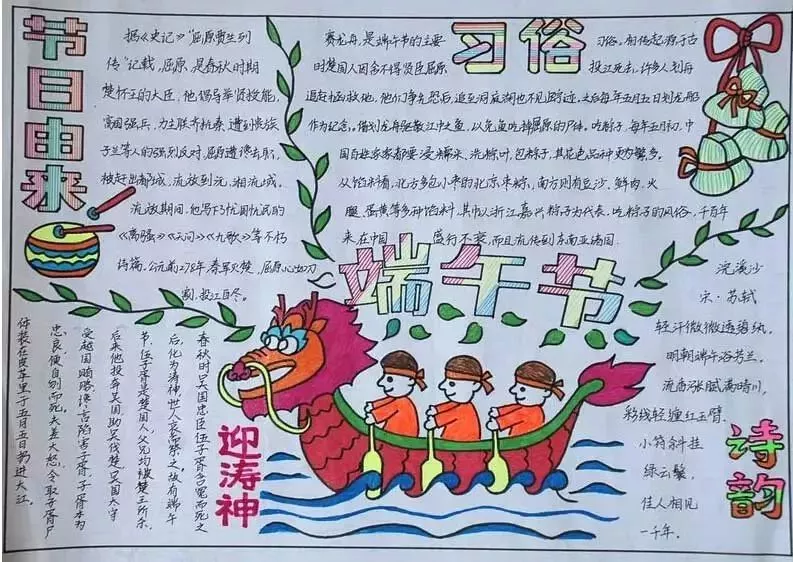 节日由来
据《史记》"屈原贾生列
传"记载,屈原,是春秋时期
楚怀王的大臣。他倡导举贤授能,
富国强兵,力主联齐抗秦,遭到贵族
子兰等人的强烈反对,屈原遭馋去职,
被赶出都城,流放到沅、湘流域。
流放期间,他写下了忧国忧民的
《离骚》《天问》《九歌》等不朽
诗篇。公元前278年,秦军灭楚,屈原心如刀
割,投江自尽。
习俗
赛龙舟,是端午节的主要习俗。相传起源于古
时楚国人因舍不得贤臣屈原投江死去,许多人划船
追赶拯救他。他们争先恐后,追至洞庭湖也不见踪迹。之后每年五月五日划龙船
作为纪念。借划龙舟驱散江中之鱼,以免鱼吃掉屈原的尸体。吃粽子,每年五月初,中
国百姓家家都要浸糯米、洗粽叶、包粽子,其花色品种更为繁多。
从馅料看,北方多包小枣的北京枣粽,南方则有豆沙、鲜肉、火
腿、蛋黄等多种馅料,其中以浙江嘉兴粽子为代表。吃粽子的风俗,千百年
来在中国盛行不衰,而且流传到东南亚诸国.
端午节
迎涛神
春秋时吴国忠臣伍子胥含冤而死之
后,化为涛神,世人哀而祭之,故有端午
节。伍子胥是楚国人,父兄均被楚王所杀,
后来他投奔吴国,助吴伐楚,吴国大宰
受越国贿赂,谗言陷害子胥,子胥本为
忠良,便自刎而死,夫差大怒,令取子胥尸
体装在皮革里于五月五日扔进大江。
诗韵
浣溪沙
宋·苏轼
轻汗微微透碧纨,
明朝端午浴芳兰。
流香涨腻满晴川。
彩线轻缠红玉臂,
小符斜挂
绿云鬟。
佳人相见
一千年。